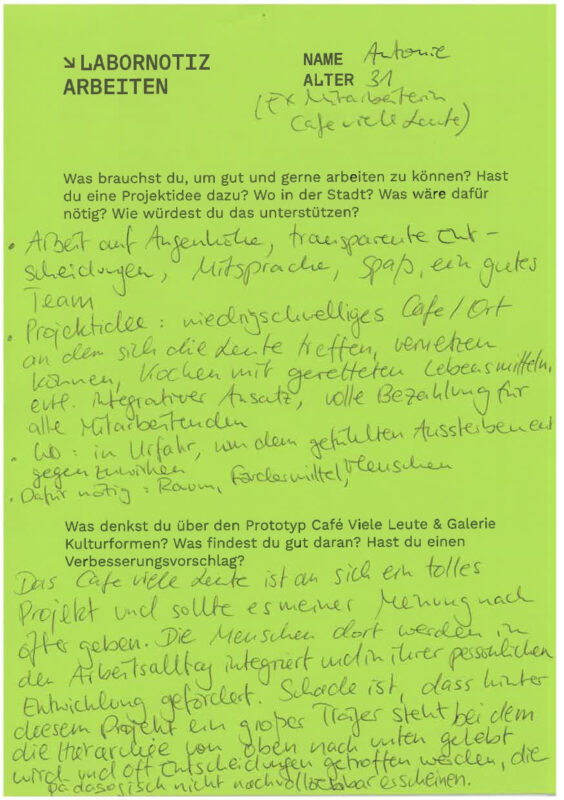 ↘ LABORNOTIZ
ARBEITEN
NAME Antonie
ALTER 31
(Ex Mitarbeiterin
Cafe viele Leute)
Was brauchst du, um gut und gerne arbeiten zu können? Hast
du eine Projektidee dazu? Wo in der Stadt? Was wäre dafür
nötig? Wie würdest du das unterstützen?
• Arbeit auf Augenhöhe, transparente Ent-
scheidungen, Mitsprache, Spaß, ein gutes
Team
• Projektidee: niedrigschwelliges Cafe/Ort
an dem sich die Leute treffen, vernetzen
können, Kochen mit geretteten Lebensmitteln,
evtl. integrativer Ansatz, volle Bezahlung für
alle Mitarbeitenden
• Wo: in Urfahr, um dem gefühlten Aussterben ent
gegenzuwirken
• Dafür nötig: Raum, Fördermittel, Menschen
Was denkst du über den Prototyp Café Viele Leute & Galerie
Kulturformen? Was findest du gut daran? Hast du einen
Verbesserungsvorschlag?
Das Cafe viele Leute ist an sich ein tolles
Projekt und sollte es meiner Meinung nach
öfter geben. Die Menschen dort werden in
den Arbeitsalltag integriert und in ihrer persönlichen
Entwicklung gefördert. Schade ist, dass hinter
diesem Projekt ein großer Träger steht bei dem
die Hierarchie von oben nach unten gelebt
wird und oft Entscheidungen getroffen werden, die
pädagogisch nicht nachvollziehbar erscheinen.